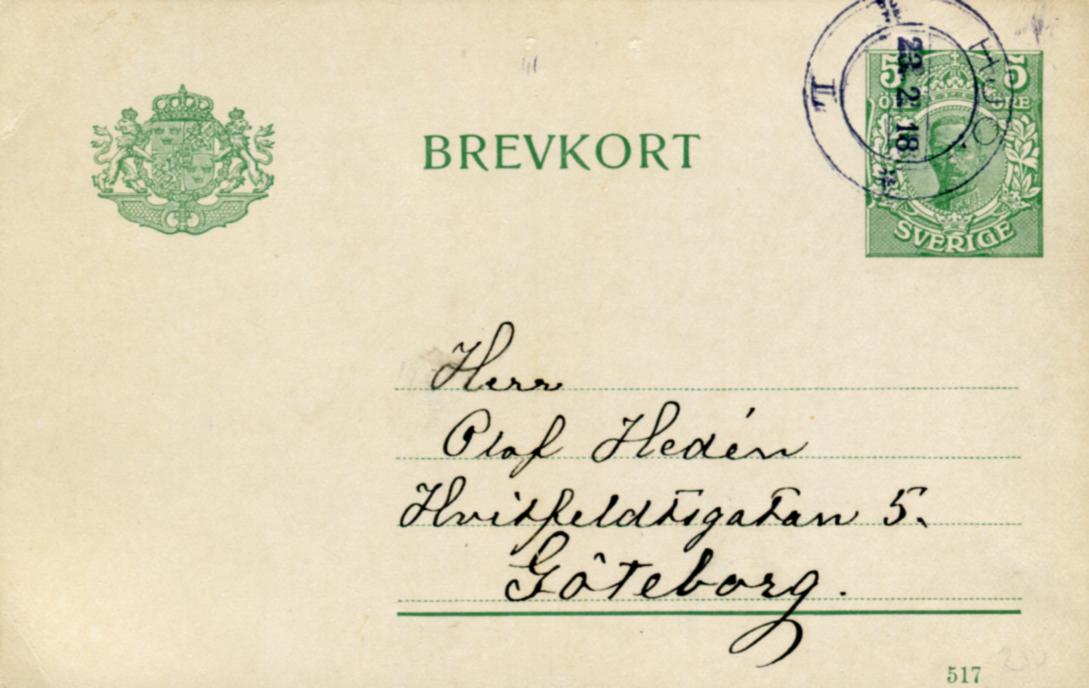 BREVKORT
5 5
ÖRE
22 2 18
L
SVERIGE
Herr
Olof Hedén
Hvitfeldtsgatan 5.
Göteborg.
517